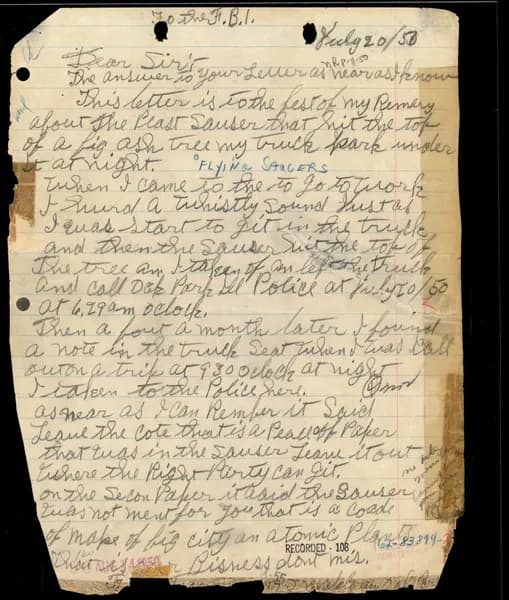 To the F.B.I.
July 20/50
Dear Sir's
The answer to your Letter as near as I know
This letter is to the best of my Remery
about the Plast Sauser that hit the top
of a big ash tree my truck park under
it at night.
"FLYING SAUCERS
When I came to the to go to work
I hurd a whistly sound Just as
I was start to git in the truck
and then the Sauser hit the top of
the tree an I taken of an left the truck
and call Oak Park Ill Police at July 20/50
at 6,29 am oclock.
Then a bout a month later I found
a note in the truck seat when I was call
out on a trip at 930 oclock at night
I taken to the Police here.
as near as I can Remper it Said
Leave the cote that is a Peace of Paper
that was in the Sauser Leave it out
where the Right Party can git.
on the Secon Paper it said the Sauser
was not ment for you that is a coade
of mape of big city an atomic Plant
RECORDED - 108
62-83894-
That is Bisness dont mis.